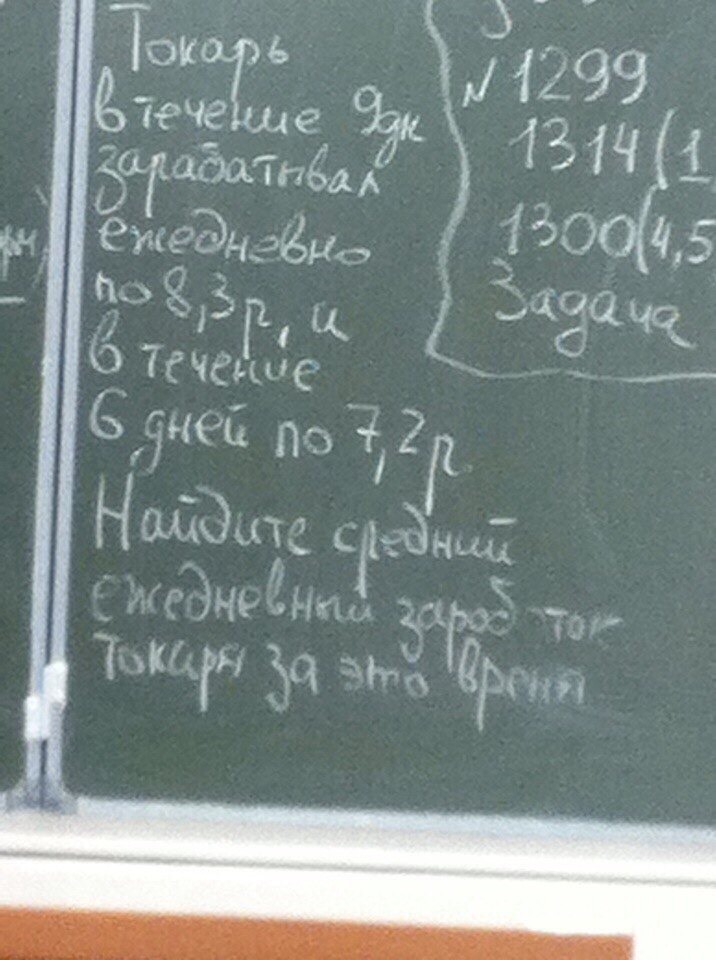 Токарь
в течение 9дн
зарабатывал
ежедневно
по 8,3р, и
в течение
6 дней по 7,2р.
Найдите средний
ежедневный зараб ток
токаря за это время
№ 1299
1314(1,
1300(4,5
Задача